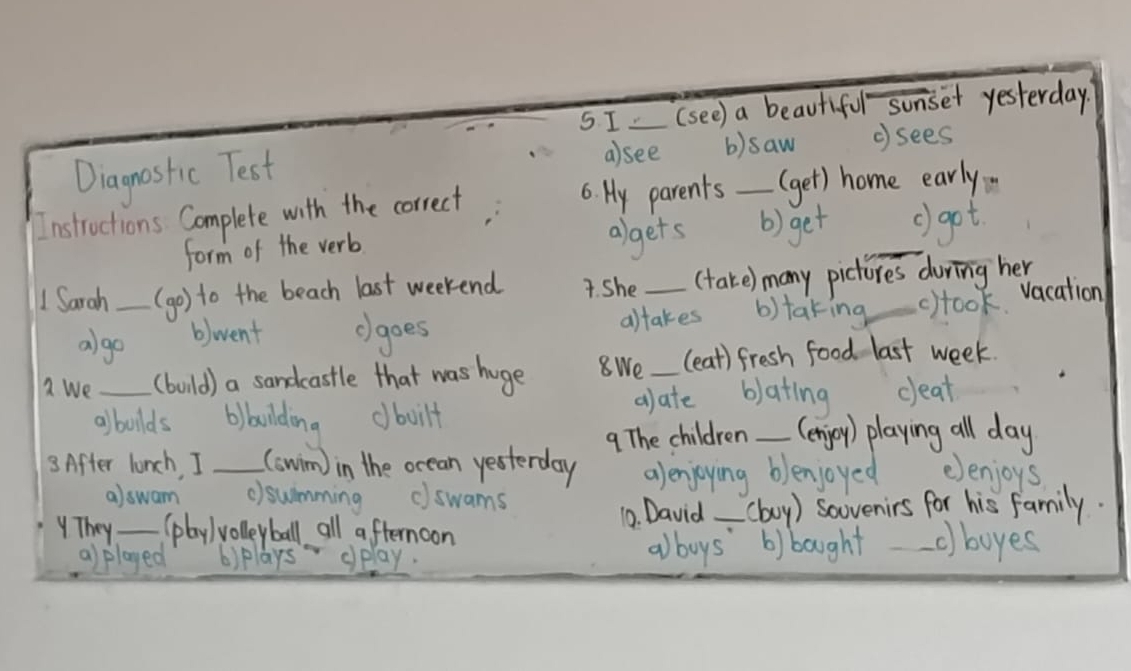 Diagnostic Test
Instructions: Complete with the correct
form of the verb.
1 Sarah ___ (go) to the beach last weekend
a) go b) went c) goes
2 We ___ (build) a sandcastle that was huge
a) builds b) building c) built
3 After lunch, I ___ (swim) in the ocean yesterday
a) swam c) swimming c) swams
4 They ___ (play) volleyball all afternoon
a) played b) plays c) play.
5. I ___ (see) a beautiful sunset yesterday.
a) see b) saw c) sees
6. My parents ___ (get) home early
a) gets b) get c) got.
7. She ___ (take) many pictures during her
vacation
a) takes b) taking c) took.
8 We ___ (eat) fresh food last week.
a) ate b) ating c) eat
9 The children ___ (enjoy) playing all day
a) enjoying b) enjoyed c) enjoys
10. David ___ (buy) souvenirs for his family.
a) buys b) bought c) buyes